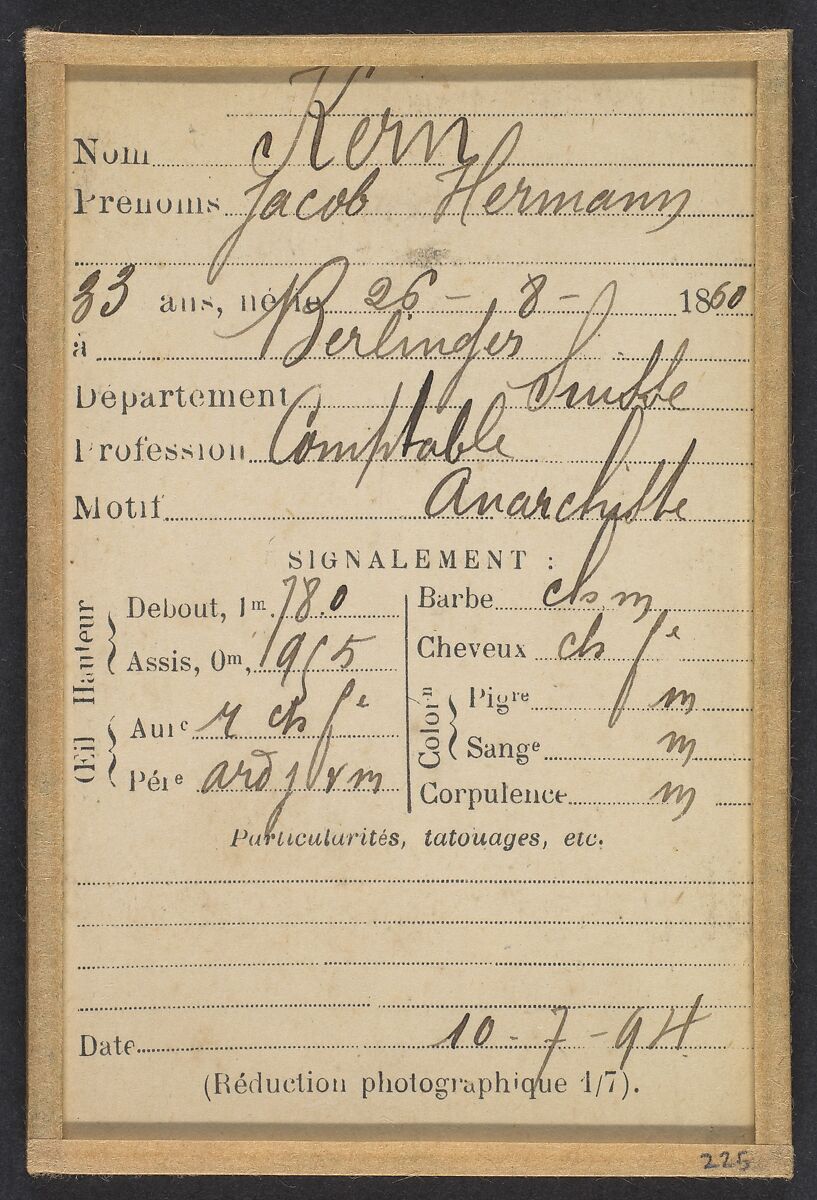 Nom Kern
Prénoms Jacob Hermann
33 ans, né le 26 - 8 - 1860
à Berlinges
Département Suisse
Profession Comptable
Motif Anarchiste
SIGNALEMENT :
Hauteur
Debout, 1m. 78.0
Assis, 0m, 95
Œil
Aurᵉ r ch fᵉ
Périᵉ ard j r m
Barbe ch m
Cheveux ch fᵉ
Colorⁿ
Pigʳᵉ m
Sangᵉ m
Corpulence m
Particularités, tatouages, etc.
Date 10 - 7 - 94
(Réduction photographique 1/7).
225